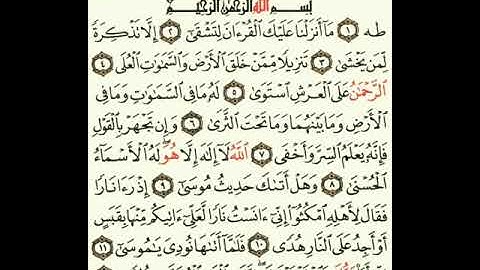 بِسْمِ اللَّهِ الرَّحْمَٰنِ الرَّحِيمِ
طه ١ مَا أَنزَلْنَا عَلَيْكَ الْقُرْءَانَ لِتَشْقَىٰ ٢ إِلَّا تَذْكِرَةً
لِّمَن يَخْشَىٰ ٣ تَنزِيلًا مِّمَّنْ خَلَقَ الْأَرْضَ وَالسَّمَٰوَٰتِ الْعُلَى ٤
الرَّحْمَٰنُ عَلَى الْعَرْشِ اسْتَوَىٰ ٥ لَهُ مَا فِي السَّمَٰوَٰتِ وَمَا فِي
الْأَرْضِ وَمَا بَيْنَهُمَا وَمَا تَحْتَ الثَّرَىٰ ٦ وَإِن تَجْهَرْ بِالْقَوْلِ
فَإِنَّهُ يَعْلَمُ السِّرَّ وَأَخْفَى ٧ اللَّهُ لَا إِلَٰهَ إِلَّا هُوَ لَهُ الْأَسْمَاءُ
الْحُسْنَىٰ ٨ وَهَلْ أَتَىٰكَ حَدِيثُ مُوسَىٰ ٩ إِذْ رَءَا نَارًا
فَقَالَ لِأَهْلِهِ امْكُثُوا إِنِّي ءَانَسْتُ نَارًا لَّعَلِّي ءَاتِيكُم مِّنْهَا بِقَبَسٍ
أَوْ أَجِدُ عَلَى النَّارِ هُدًى ١٠ فَلَمَّا أَتَىٰهَا نُودِيَ يَٰمُوسَىٰ ١١